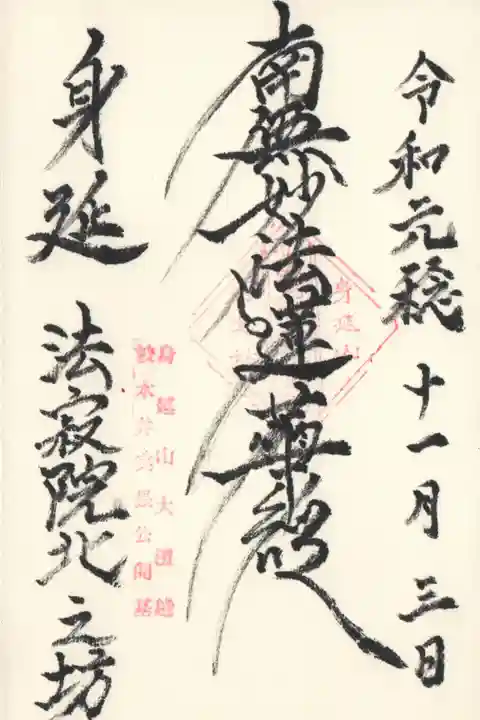 令和元稔 十一月 三日
南無妙法蓮華経
身延山
身延山大檀越
波木井実長公開基
身延 法寂院北之坊